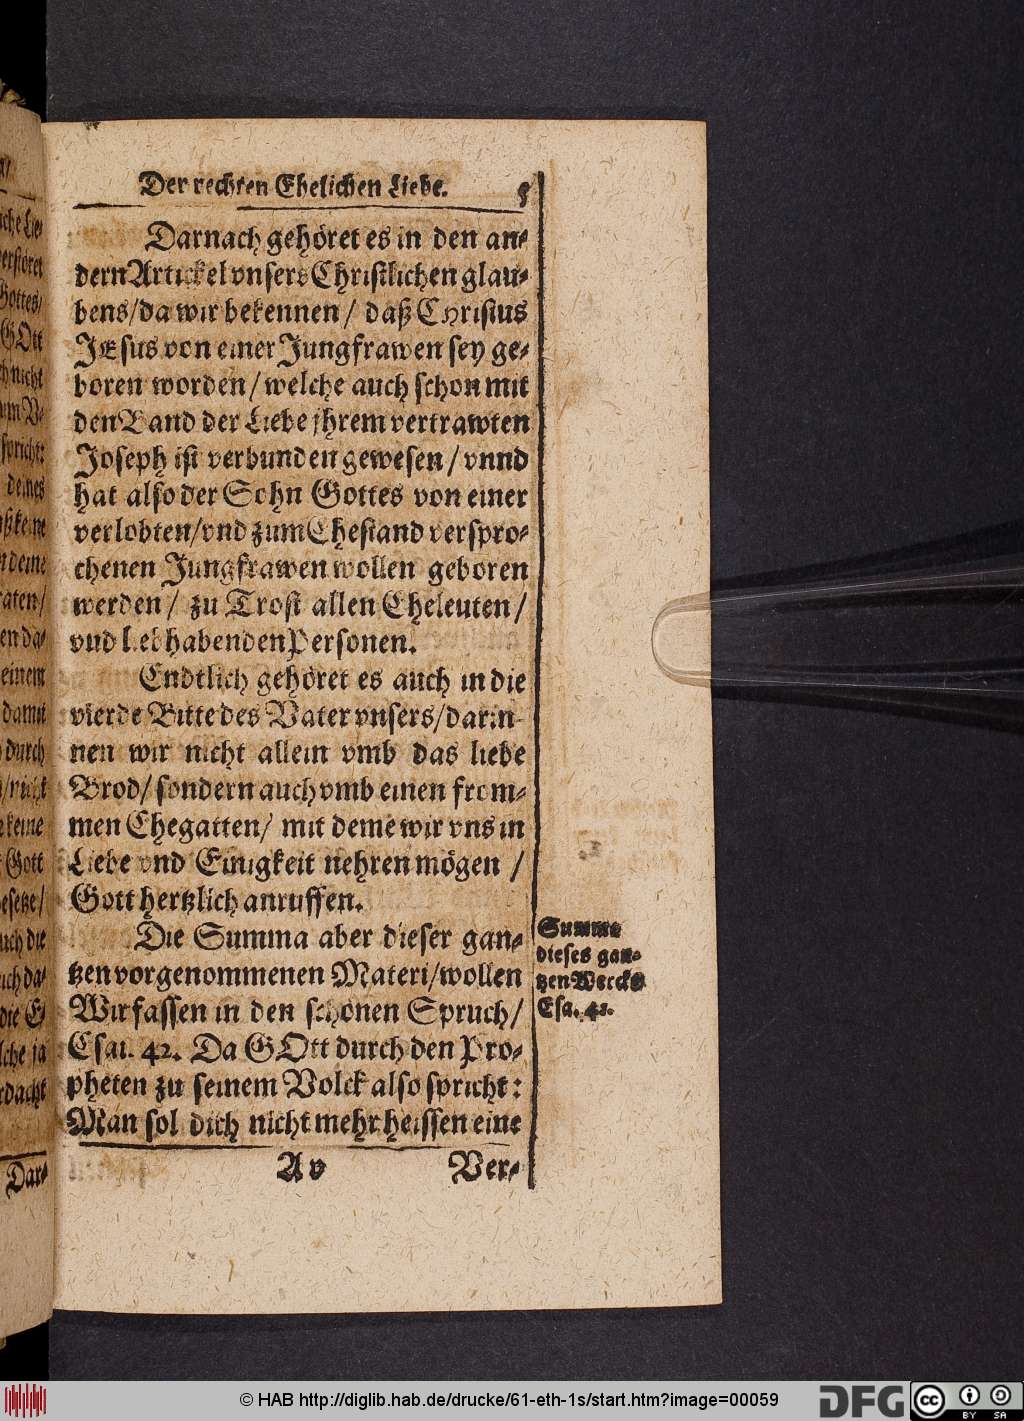 Der rechten Ehelichen Liebe. 5
Darnach gehöret es in den an-
dern Artickel vnsers Christlichen glau-
bens/da wir bekennen / daß Christus
JEsus von einer Jungfrawen sey ge-
boren worden / welche auch schon mit
den Band der Liebe jhrem vertrawten
Joseph ist verbunden gewesen / vnnd
hat also der Sohn Gottes von einer
verlobten/vnd zum Ehestand verspro-
chenen Jungfrawen wollen geboren
werden / zu Trost allen Eheleuten /
vnd liebhabenden Personen.
Endtlich gehöret es auch in die
vierde Bitte des Vater vnsers/darin-
nen wir nicht allein vmb das liebe
Brod/ sondern auch vmb einen from-
men Ehegatten/ mit deme wir vns in
Liebe vnd Einigkeit nehren mögen /
Gott hertzlich anruffen.
Die Summa aber dieser gan-
tzen vorgenommenen Materi/wollen
Wir fassen in den schönen Spruch/
Esai. 42. Da GOtt durch den Pro-
pheten zu seinem Volck also spricht:
Man sol dich nicht mehr heissen eine
A v Ver-
Summa
dieses gan-
tzen Wercks
Esa. 42.
che Lie-
verstöret
Gottes/
GOtt
nicht
spricht:
deines
keine
deine
raten/
en da-
einem
damit
durch
/nicht
keine
Gott
esetze/
uch die
uch da-
die E-
lche ja
rdacht
Dar-
© HAB http://diglib.hab.de/drucke/61-eth-1s/start.htm?image=00059
DFG
cc
BY SA